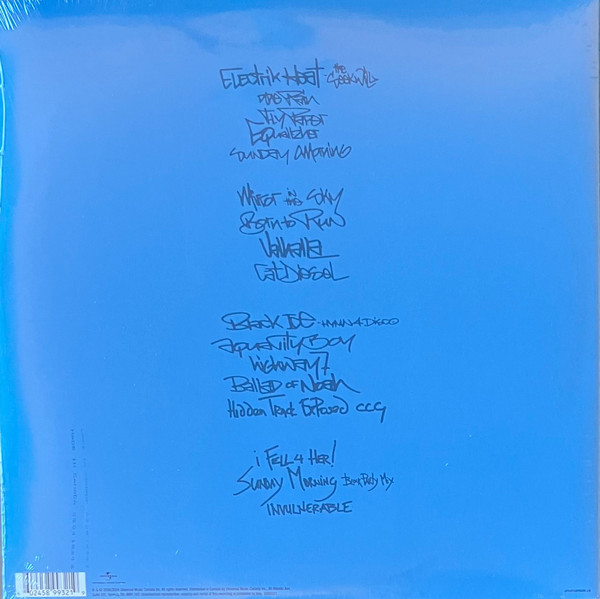 Electrik Heat - the Seekwill
Ode Rain
Fly Paper
Equalizer
Sunday Morning
Mirror in the Sky
Born to Run
Valhalla
Cat Diesel
Black ICE - HYMN 4 Disco
Aquanity Boy
Highway 7
Ballad of Noah
Hidden Track Exposed CCG
i Fell 4 Her!
Sunday Morning Beat Party Mix
INVULNERABLE
UNIVERSAL